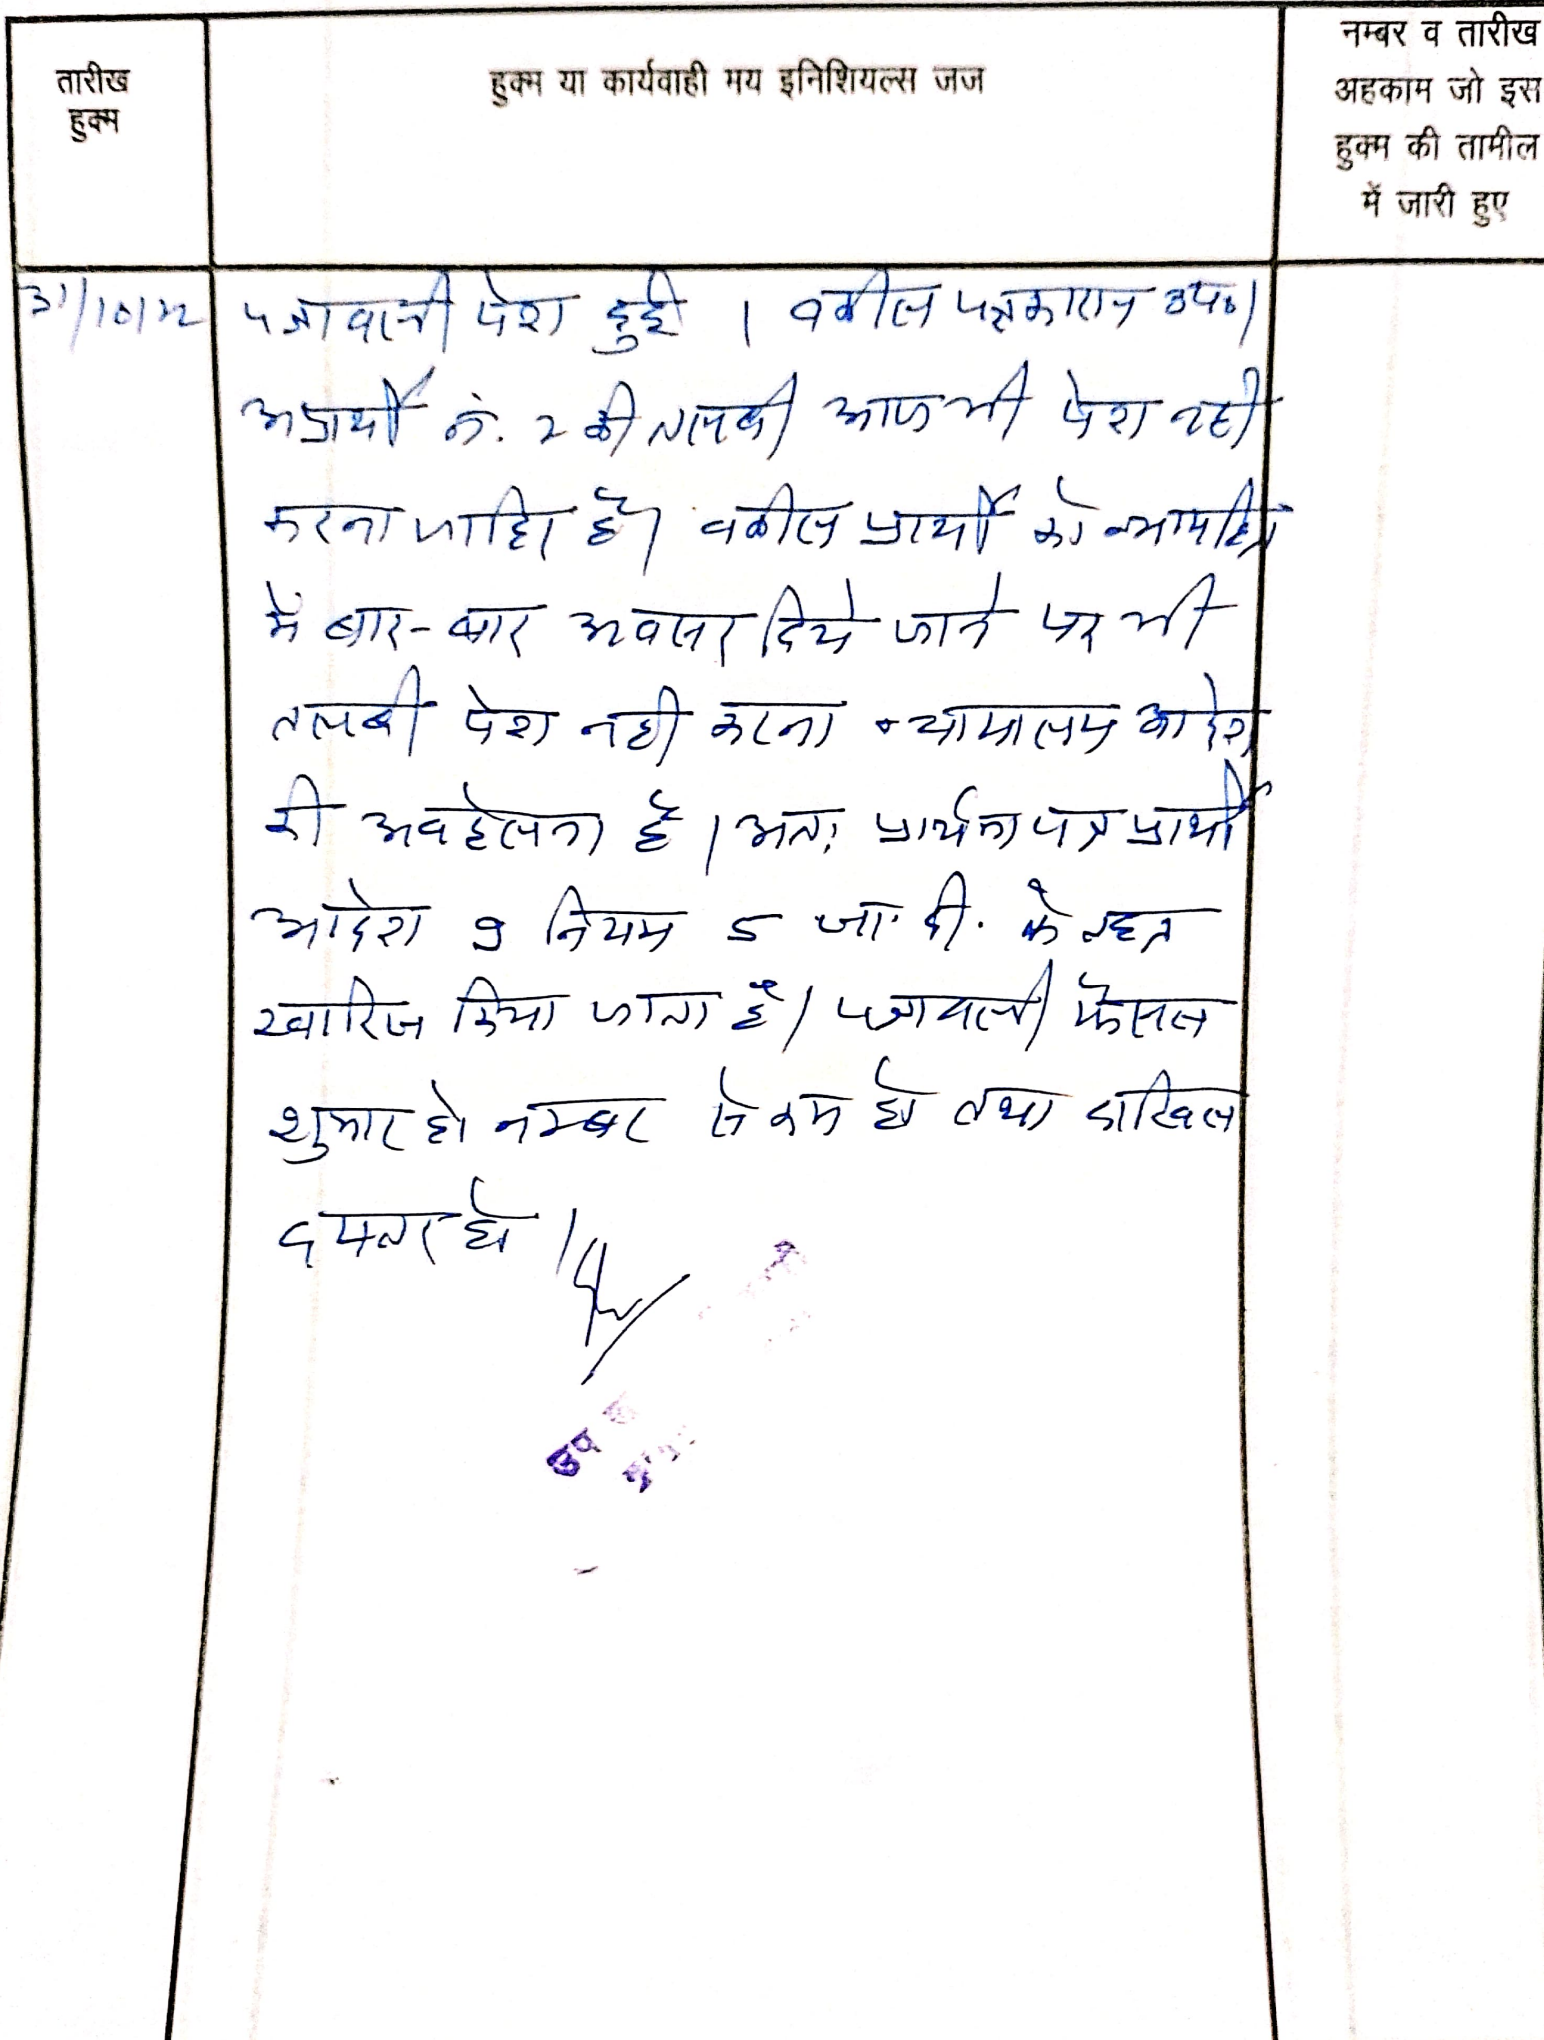 तारीख
हुक्म
हुक्म या कार्यवाही मय इनिशियल्स जज
नम्बर व तारीख
अहकाम जो इस
हुक्म की तामील
में जारी हुए
31/10/22
पत्रावली पेश हुई । वकील पक्षकारान उप०।
अप्रार्थी नं. 2 की तलबी आज भी पेश नही
करना जाहिर है। वकील प्रार्थी को न्यायहित
में बार-बार अवसर दिये जाने पर भी
तलबी पेश नही करना न्यायालय आदेश
की अवहेलना है। अतः प्रार्थना पत्र प्रार्थी
आदेश 9 नियम 5 जा. दी. के तहत
खारिज किया जाता है। पत्रावली फैसल
शुमार हो नम्बर से कम हो तथा दाखिल
दफ्तर हो ।
उप